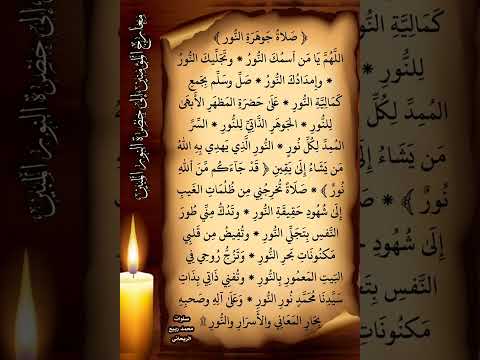 ﴿ صَلَاةُ جَوهَرَةِ النُّور ﴾
اللَّهُمَّ يَا مَن اسمُكَ النُّورُ * وتَجَلِّيكَ النُّورُ
* وإمدَادُكَ النُّورُ * صَلِّ وسَلِّم بِجَمعِ
كَمَالِيَّةِ النُّورِ * عَلَى حَضرَةِ المَظهَرِ الأَبهَى
لِلنُّورِ * الجَوهَرِ الذَّاتِيِّ لِلنُّورِ * السِّرِّ
المُمِدِّ لِكُلِّ نُورٍ * النُّورِ الَّذِي يَهدِي بِهِ اللهُ
مَن يَشَاءُ إِلَى يَقِينِ ﴿ قَد جَآءَكُم مِّنَ ٱللهِ
نُورٌ ﴾ * صَلَاةً تُخرِجُنِي مِن ظُلُمَاتِ الغَيبِ
إِلَى شُهُودِ حَقِيقَةِ النُّورِ * وتَدُكُّ مِنِّي طُورَ
النَّفسِ بِتَجَلِّي النُّورِ * وتُفِيضُ مِن قَلبِي
مَكنُونَاتِ بَحرِ النُّورِ * وَتَزُجُّ رُوحِي فِي
البَيتِ المَعمُورِ بِالنُّورِ * وتُفنِي ذَاتِي بِذَاتِ
سَيِّدِنَا مُحَمَّدٍ نُورِ النُّورِ * وَعَلَى آلِهِ وصَحبِهِ
بِحَارِ المَعَانِي والأَسرَارِ والنُّورِ ۩
صلوات
محمد ربيع
الريحاني
مِعرَاجُ المُؤمِنِينَ إِلَى حَضرَةِ النُّورِ المُبِينِ
إِلَى حَضرَةِ النُّورِ المُبِينِ
كَمَالِيَّةِ النُّورِ
لِلنُّورِ
المُمِدِّ لِكُلِّ
مَن يَشَاءُ إِلَى
نُورٌ ﴾ *
إِلَى شُهُودِ
النَّفسِ بِتَ
مَكنُونَاتِ